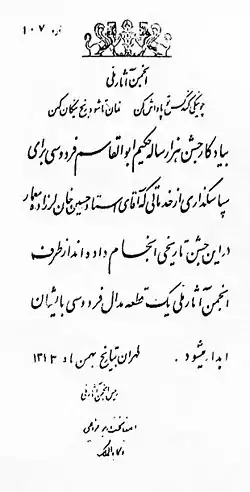 نمره ۱۰۷
انجمن آثار ملی
چو نیکی کند کس تو پاداش کن
ممان تا شود رنج نیکان کهن
بیادگار جشن هزار ساله حکیم ابوالقاسم فردوسی برای
سپاسگذاری از خدماتی که آقای استاد حسین خان لرزاده معمار
در این جشن تاریخی انجام داده‌اند از طرف
انجمن آثار ملی یک قطعه مدال فردوسی بایشان
اهداء میشود. طهران بتاریخ بهمن ماه ۱۳۱۳
رئیس انجمن آثار ملی